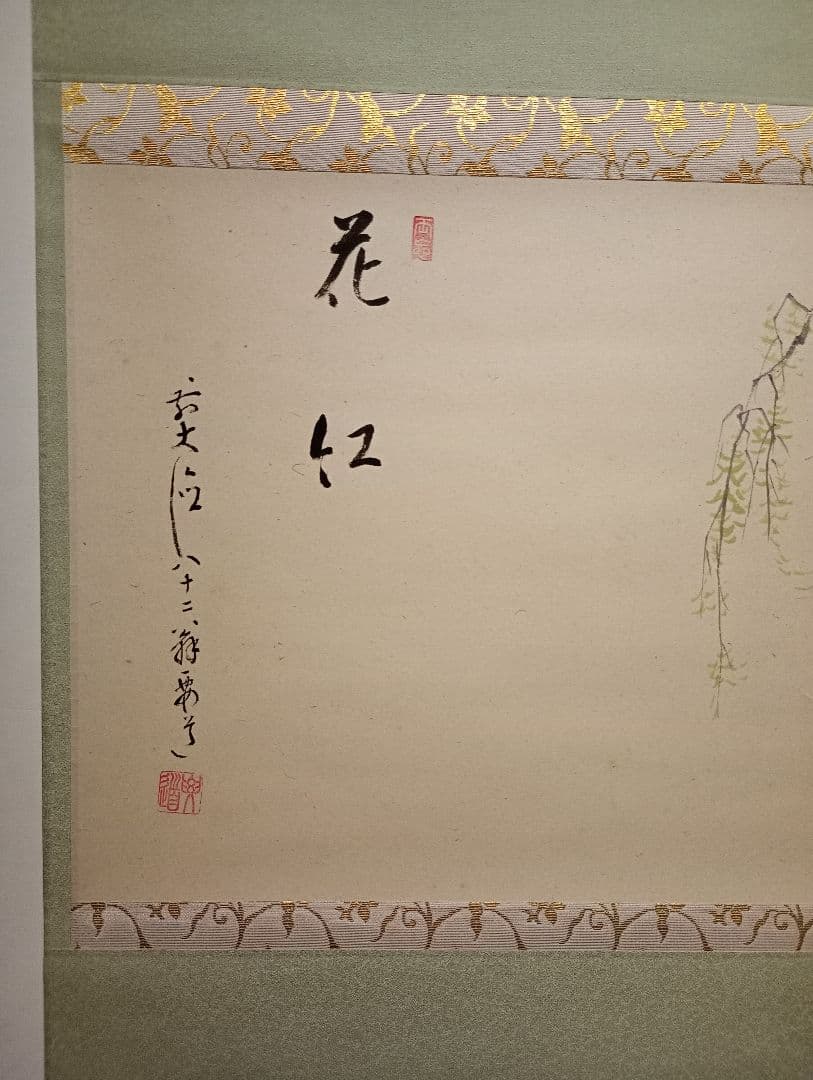 花紅
前大徳八十二翁要道